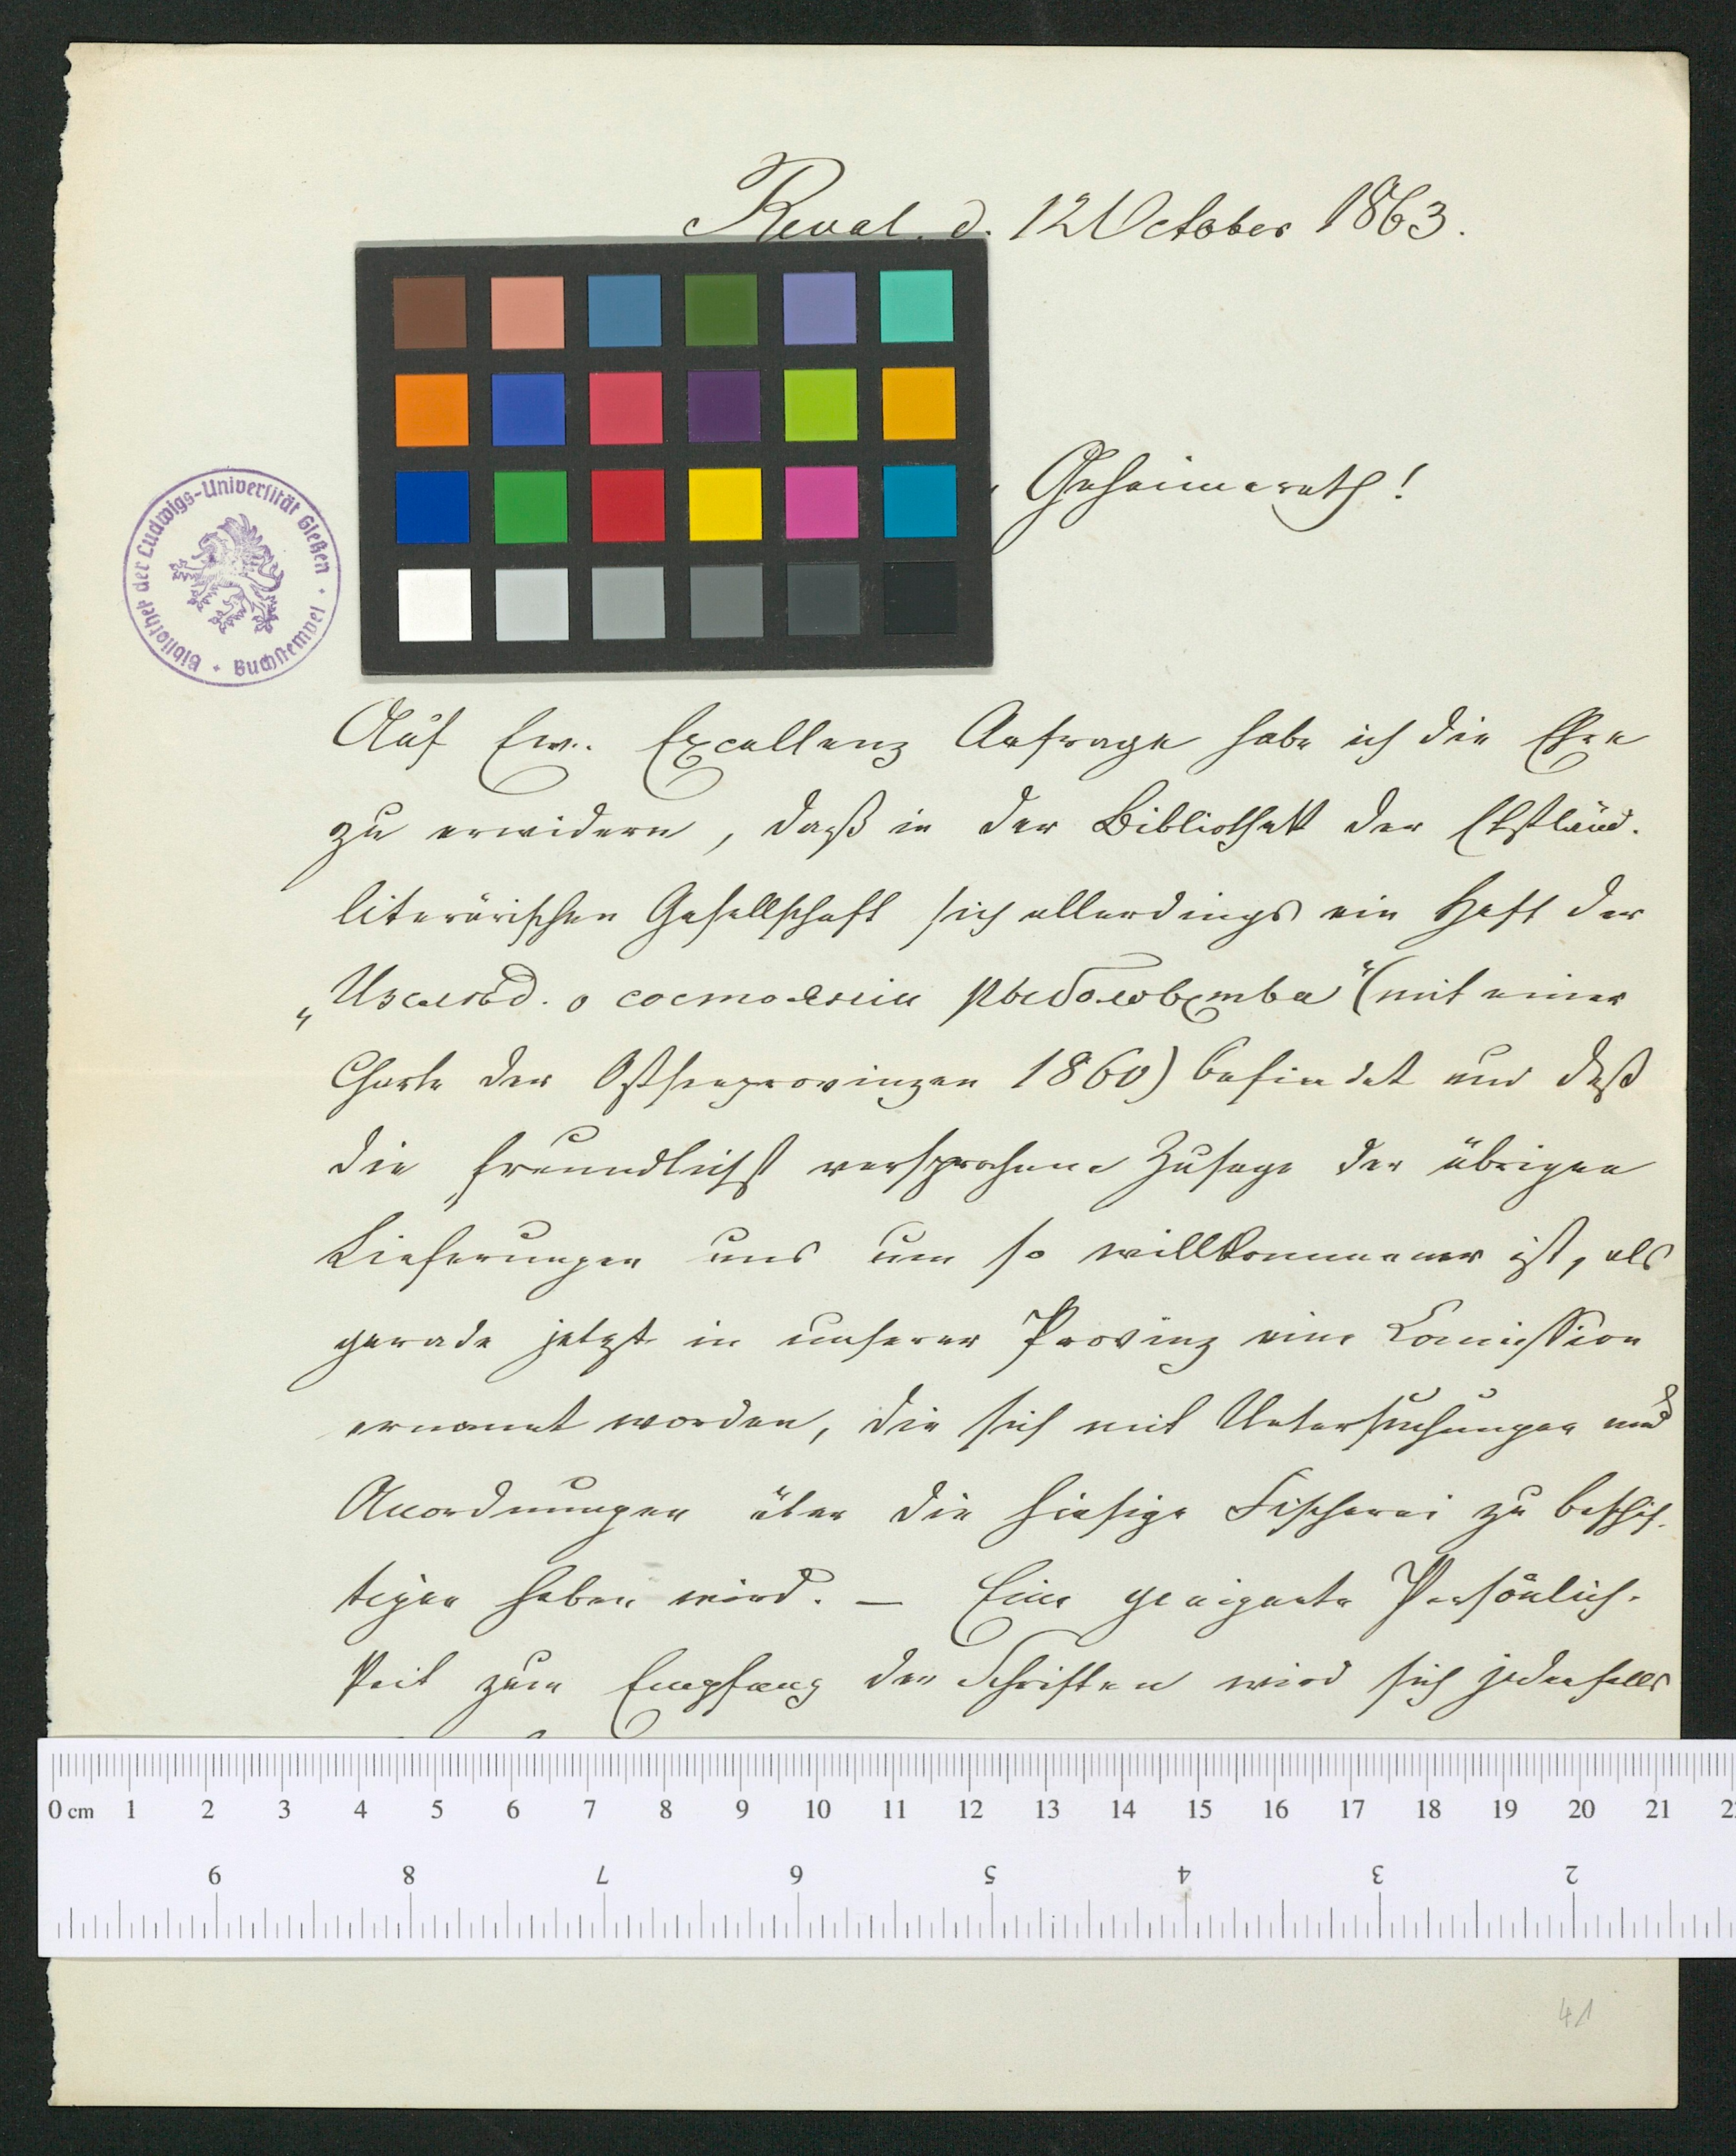 Reval. d. 12 October 1863.
Geheimerath!
Bibliothek der Ludwigs-Universität Gießen · Buchstempel ·
Auf Ew. Excellenz Anfrage habe ich die Ehre
zu erwidern, daß in der Bibliothek der Ehstländ.
literärischen Gesellschaft sich allerdings ein Heft der
„Изслѣд. о состоянiи рыболовства“ (mit einer
Charte der Ostseeprovinzen 1860) befindet und daß
die freundlichst versprochene Zusage der übrigen
Lieferungen uns um so willkommener ist, als
gerade jetzt in unserer Provinz eine Comission
ernannt worden, die sich mit Untersuchungen und
Anordnungen über die hiesige Fischerei zu beschäf-
tigen haben wird. — Eine geeignete Persönlich-
keit zum Empfang der Schriften wird sich jedenfalls
0 cm 1 2 3 4 5 6 7 8 9 10 11 12 13 14 15 16 17 18 19 20 21
9 8 7 6 5 4 3 2
41